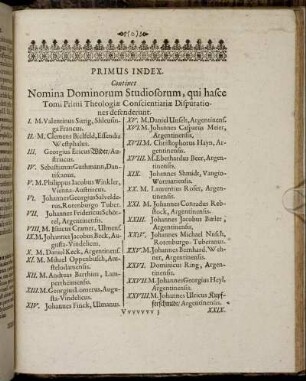 PRIMUS INDEX.
Continet
Nomina Dominorum Studiosorum, qui hasce
Tomi Primi Theologiæ Conscientiariæ Disputatio-
nes defenderunt.
I. M. Valentinus Sittig, Schleusin-
ga Francus.
II. M. Clemens Bielfeld, Essendia
Westphalus.
III. Georgius Ericus Au-
striacus.
IV. Sebastianus Guthmann, Dan-
tiscanus.
V. M. Philippus Jacobus Winkler,
Vienna-Austriacus.
VI. Johannes Georgius
Rotenburgo Tuber.
VII. Johannes Fridericus
Argentinensis.
VIII. M. Cramer, Ulmens.
IX. M. Johannes Jacobus Beck, Au-
gusta-Vindelicus.
X. M. David Keck, Argentinens.
XI. M. Michael Oppenbusch, Am-
stelodamensis.
XII. M. Andreas Berthin,
XIII. M. Georgius Augu-
sta-Vindelicus.
XIV. Johannes Frick, Ulmanus.
XV. M. Daniel Ulrich, Argentinens.
XVI. M. Johannes Casparus Meier,
Argentinensis.
XVII. M. Christophorus Hayn, Ar-
gentinensis.
XVIII. M. Eberhardus Beer, Argen-
tinensis.
XIX. Johannes Schmidt, Vangio-
XX. M. Laurentius Roser, Argen-
tinensis.
XXI. M. Johannes Conradus Reb-
stock, Argentinensis.
XXIII. Johannes Jacobus
Argentinensis.
XXIV. Johannes Michael
Rotenburgo-Tuberanus.
XXV. M. Johannes Bernhard. Wal-
ther, Argentinensis.
XXVI. Dominicus Ring, Argen-
tinensis.
XXVII. Johannes Georgius Heyl,
Argentinensis.
XXVIII. M. Johannes Ulricus Kupf-
ferschmidt, Argentinensis.
Vvvvvvv 3
XXIX.